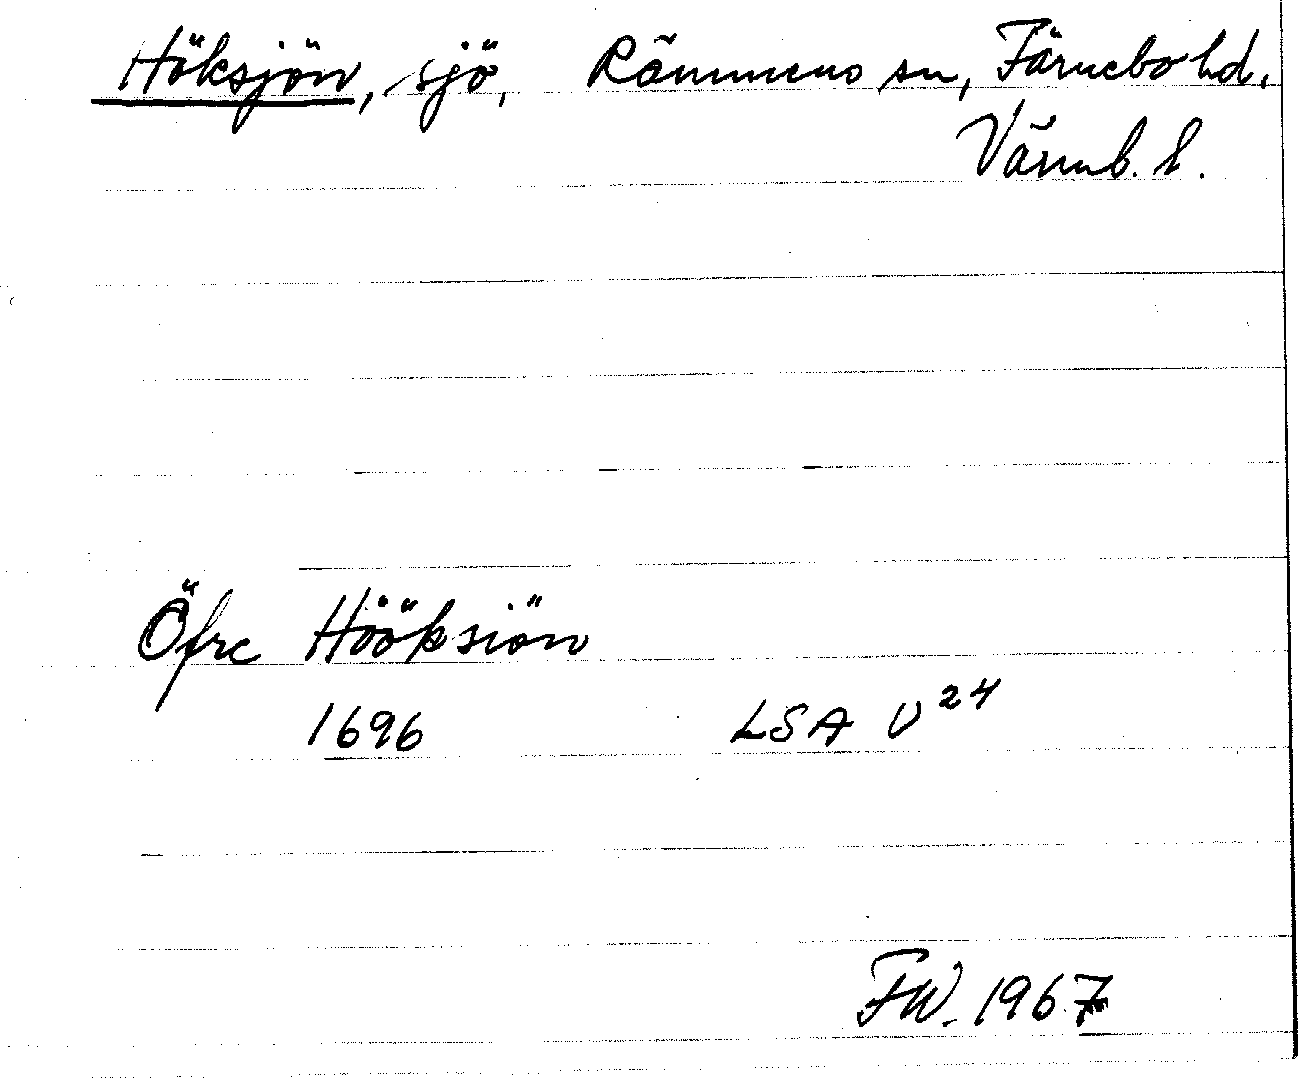 Höksjön, sjö, Rämmens sn, Färnebo hd.
Värmb. l.
Öfre Hööksiön
1696 LSA U 24
FW. 1967